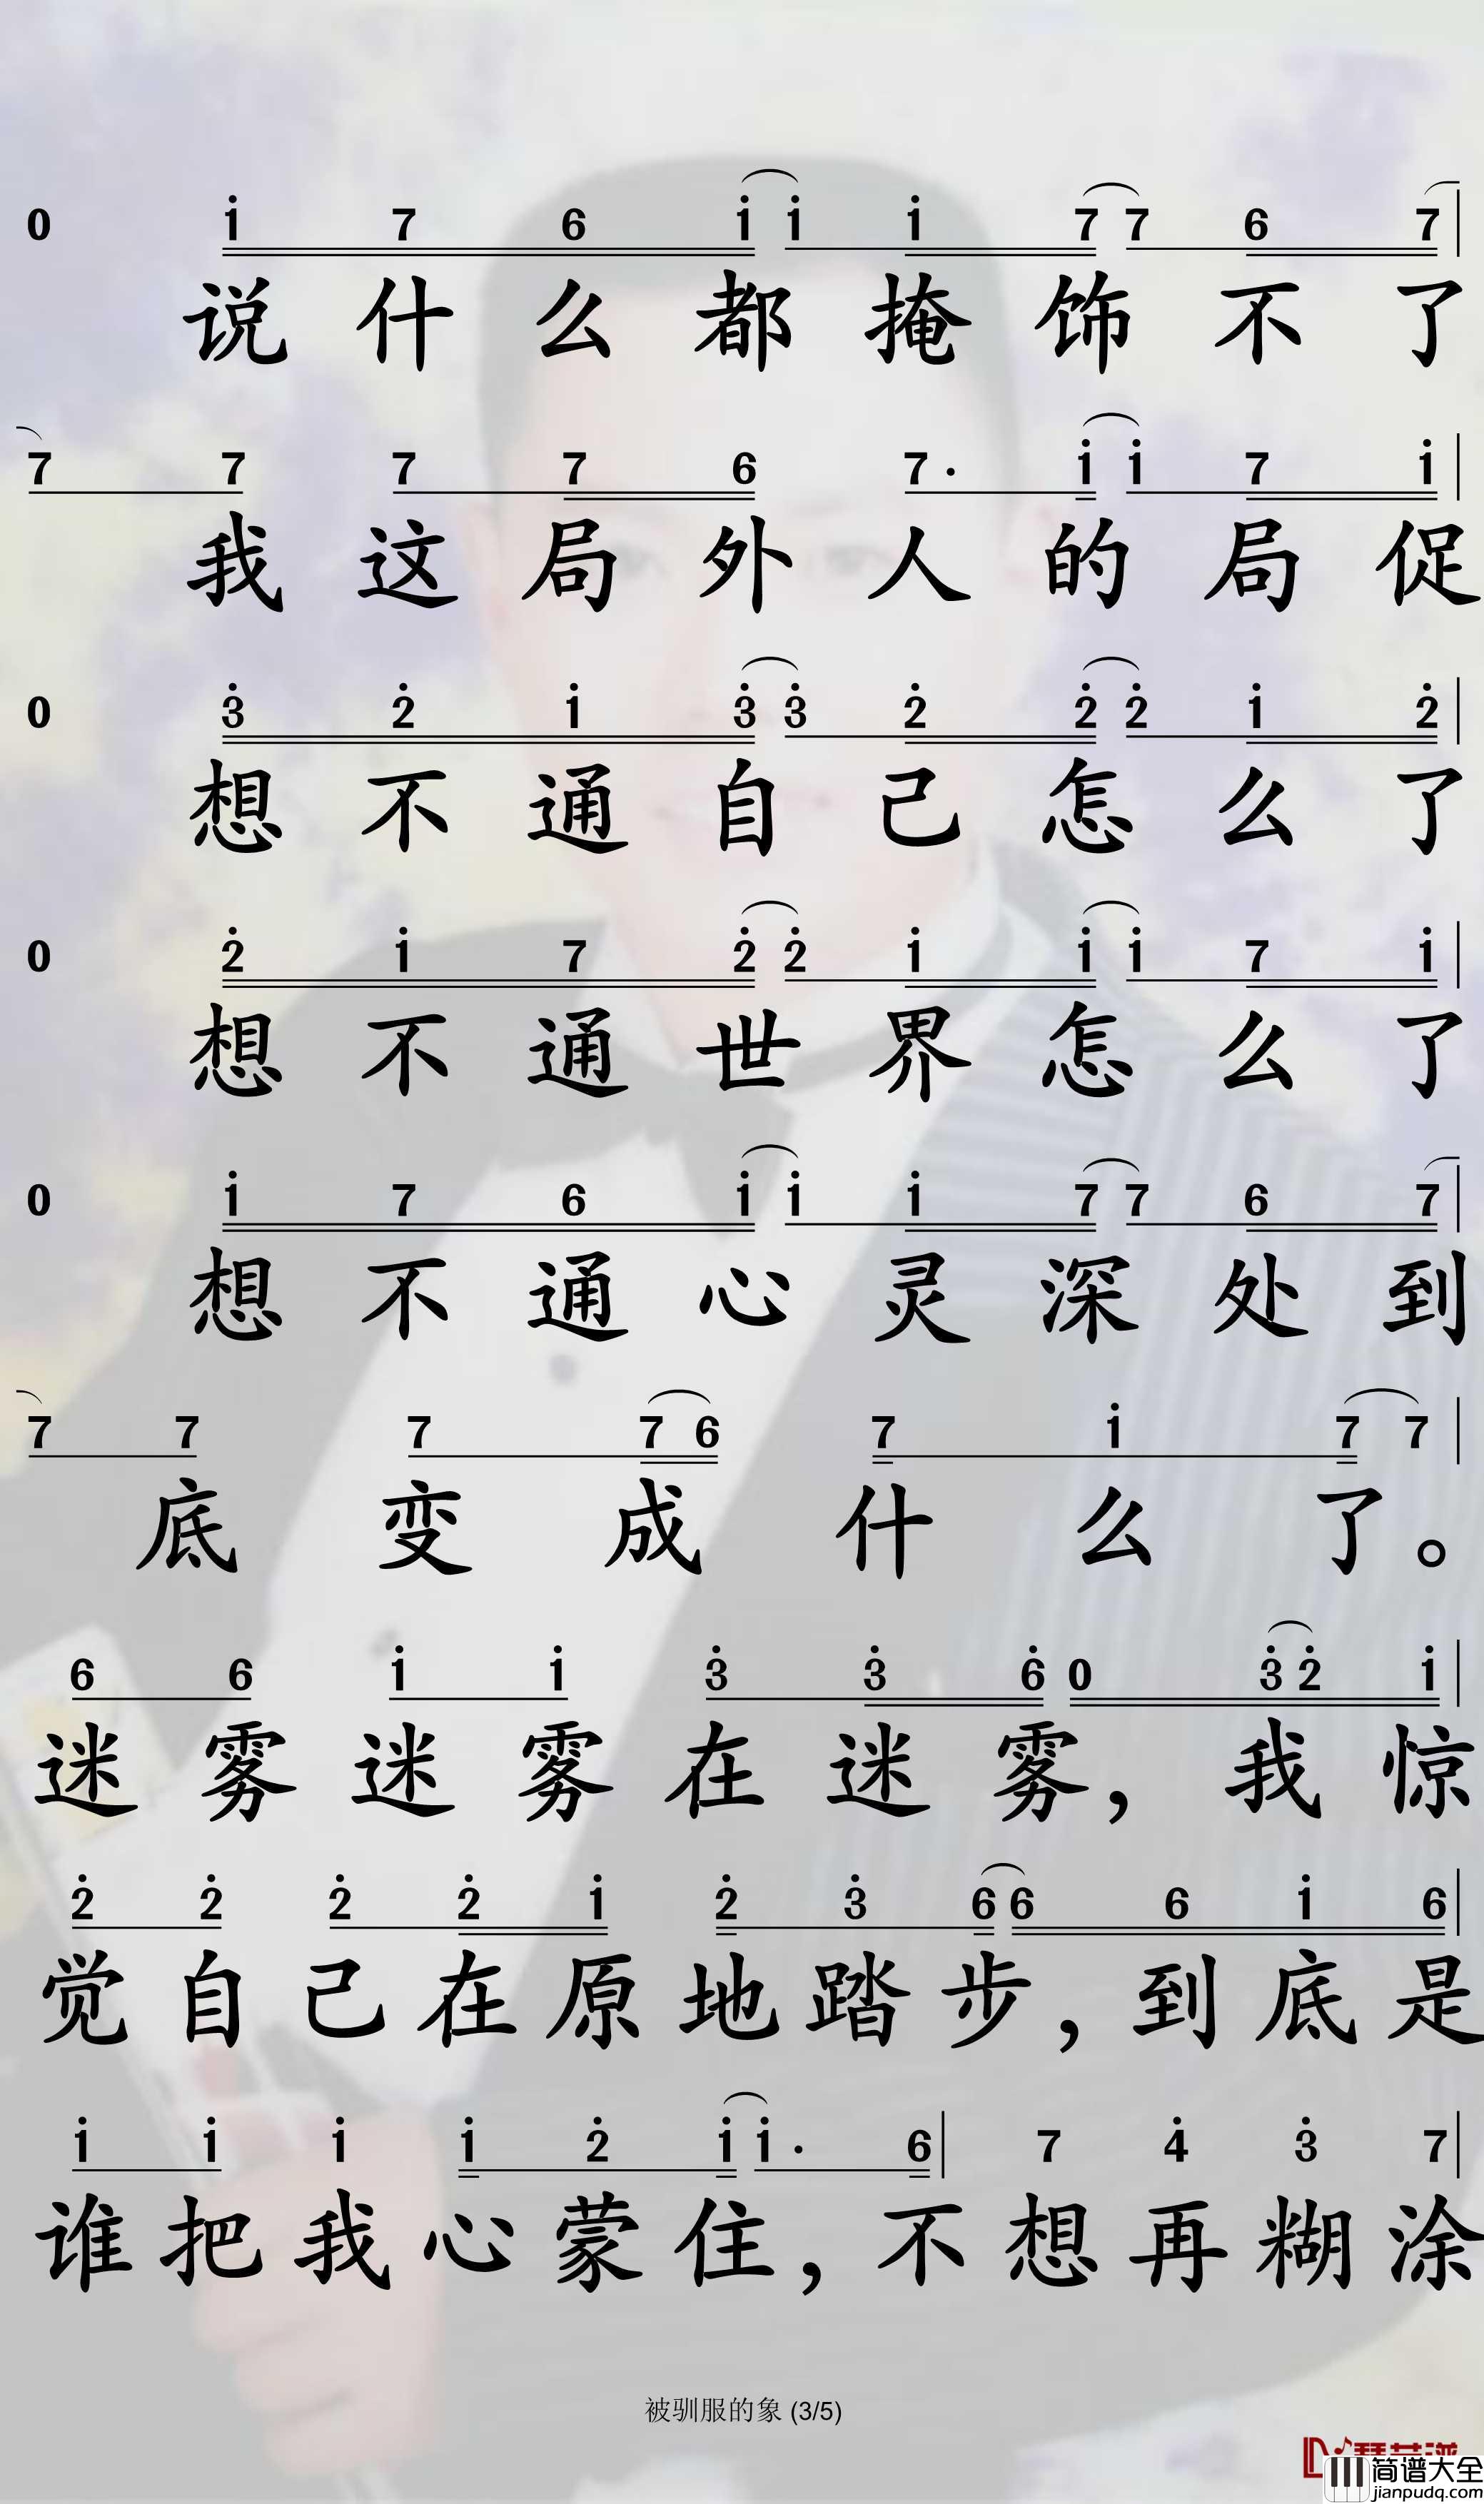 0 i 7 6 i i i 7 7 6 7
说什么都掩饰不了
7 7 7 7 6 7· i i 7 i
我这局外人的局促
0 3 2 i 3 3 2 2 2 i 2
想不通自己怎么了
0 2 i 7 2 2 i i i 7 i
想不通世界怎么了
0 i 7 6 i i i 7 7 6 7
想不通心灵深处到
7 7 7 7 6 7 i 7 7
底变成什么了。
6 6 i i 3 3 6 0 3 2 i
迷雾迷雾在迷雾，我惊
2 2 2 2 i 2 3 6 6 6 i 6
觉自己在原地踏步，到底是
i i i i 2 i i· 6 7 4 3 7
谁把我心蒙住，不想再糊涂
被驯服的象 (3/5)
简谱大全
jianpudq.com